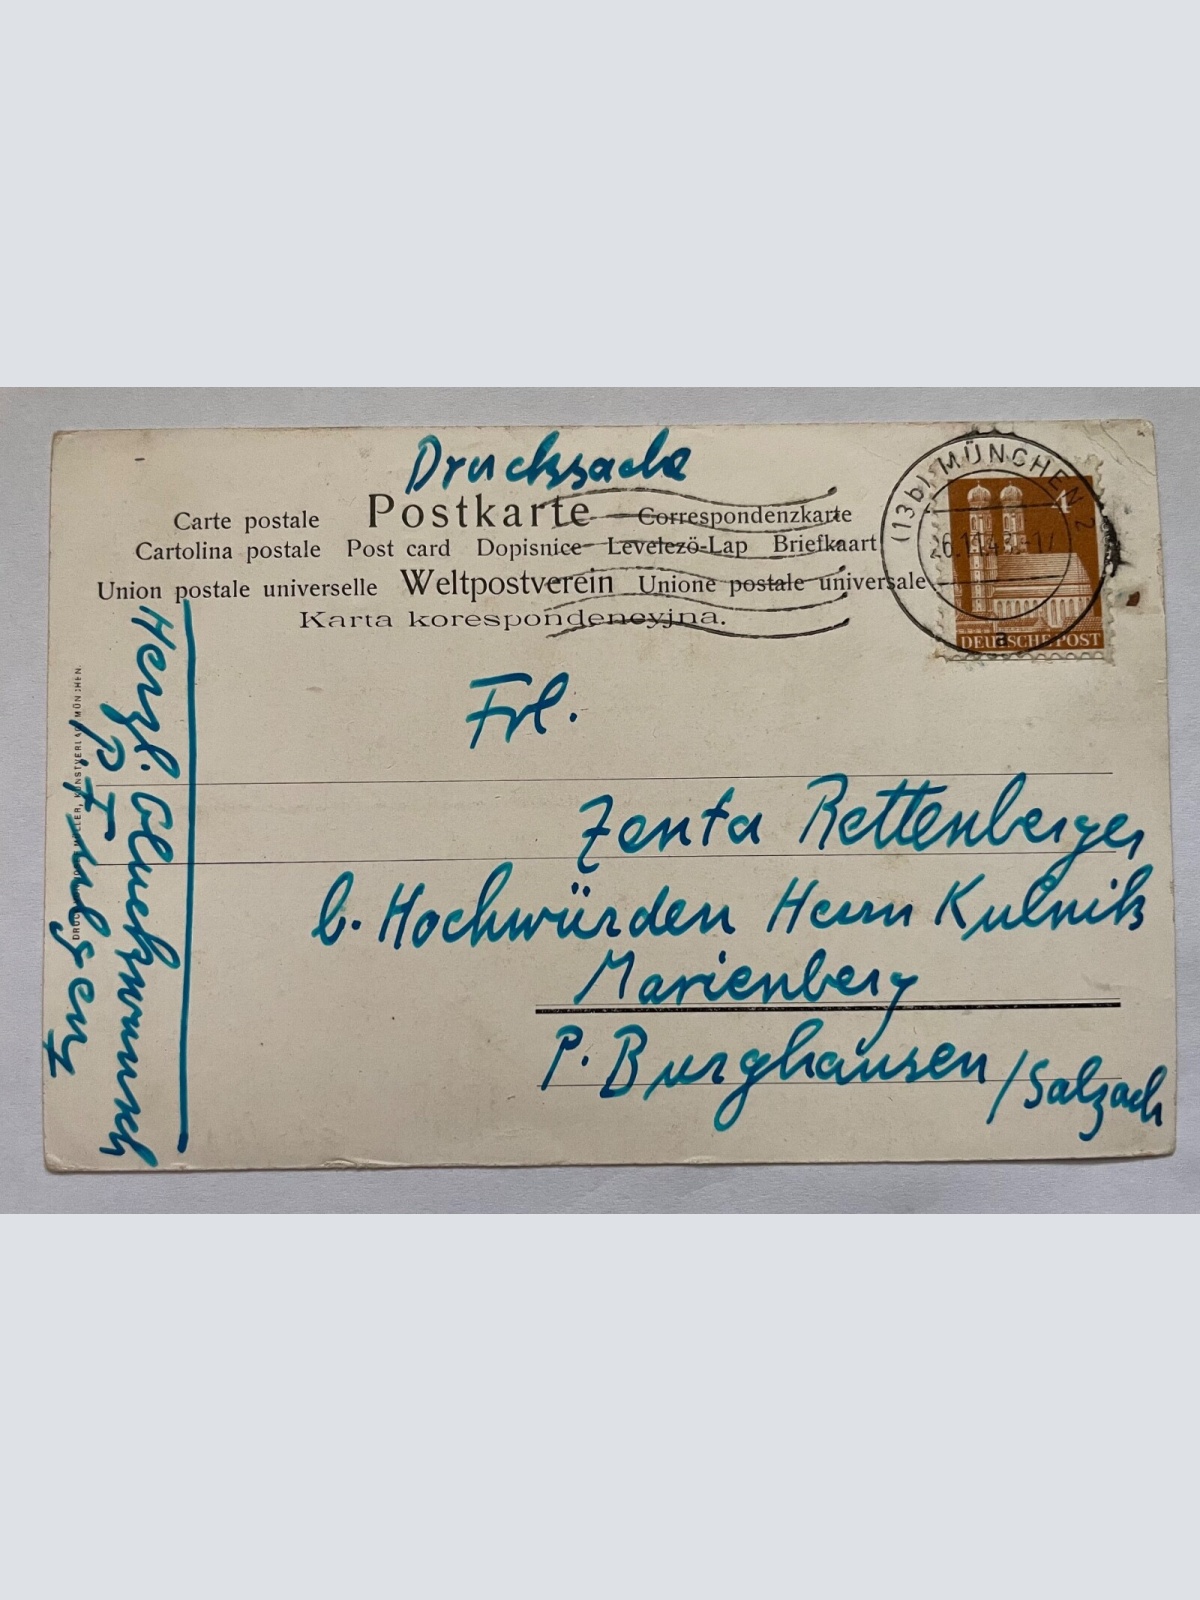 Drucksache
Carte postale Postkarte Correspondenzkarte
Cartolina postale Post card Dopisnice Levelező-Lap Briefkaart
Union postale universelle Weltpostverein Unione postale universale
Karta korespondencyjna.
(13b) MÜNCHEN 2
26.11.4
a
4
DEUTSCHE POST
Frl.
Zenta Rettenberger
b. Hochwürden Herrn Kulnik
Marienberg
P. Burghausen /Salzach
Herzl. Glückwunsch
KUNSTVERLAG MÜNCHEN.